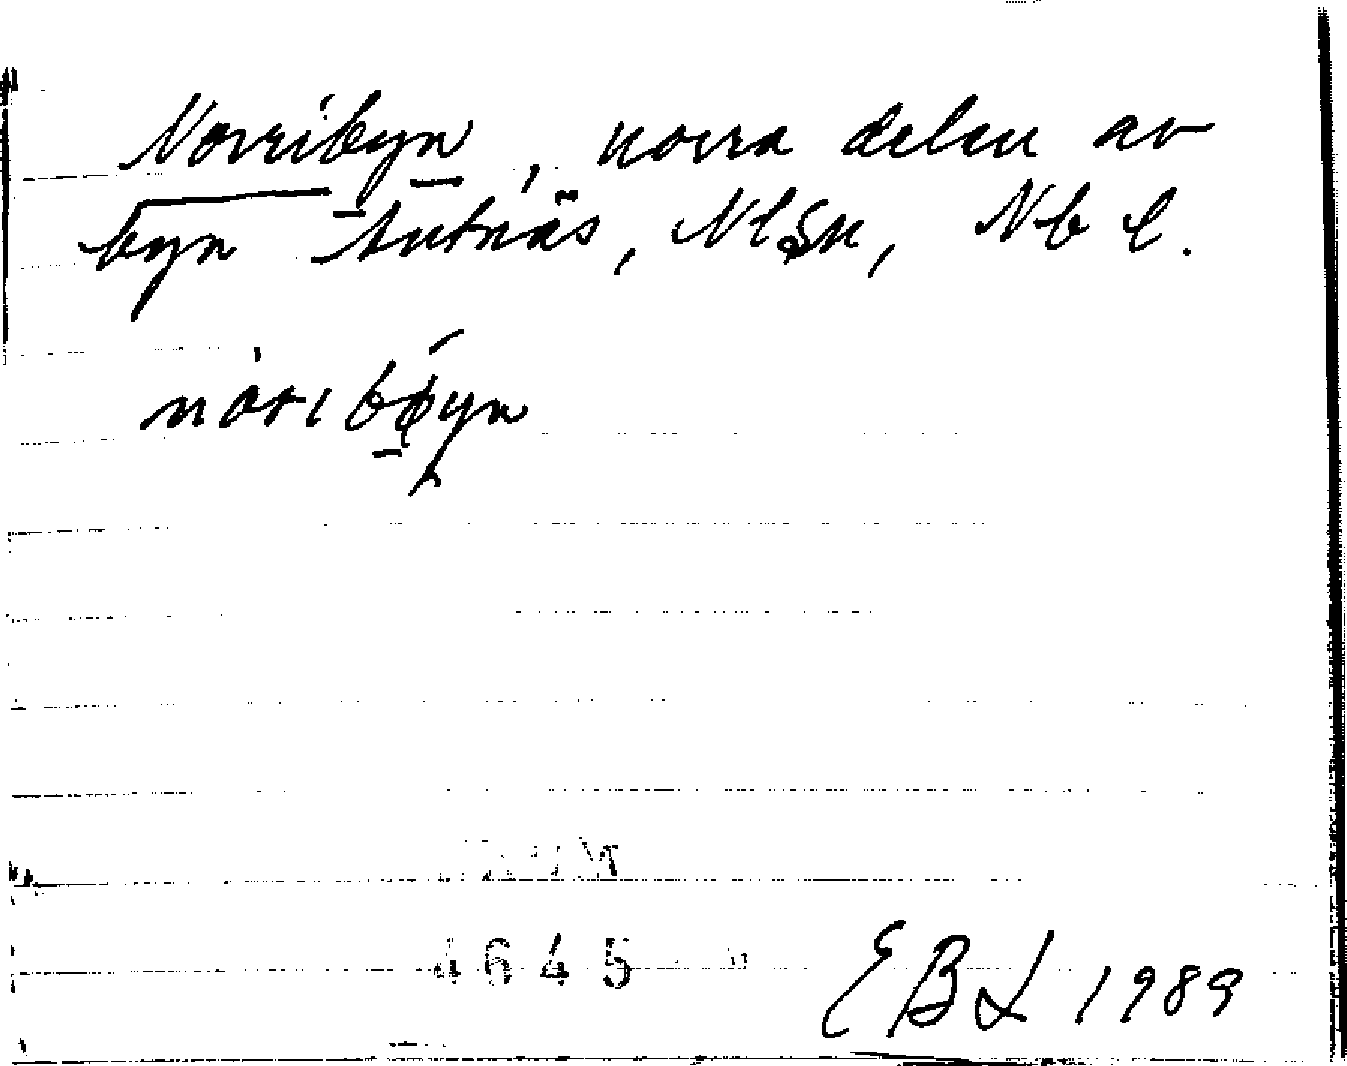 Norribyn, norra delen av
byn Antnäs, Nlsn, Nb l.
4645
EBL 1989